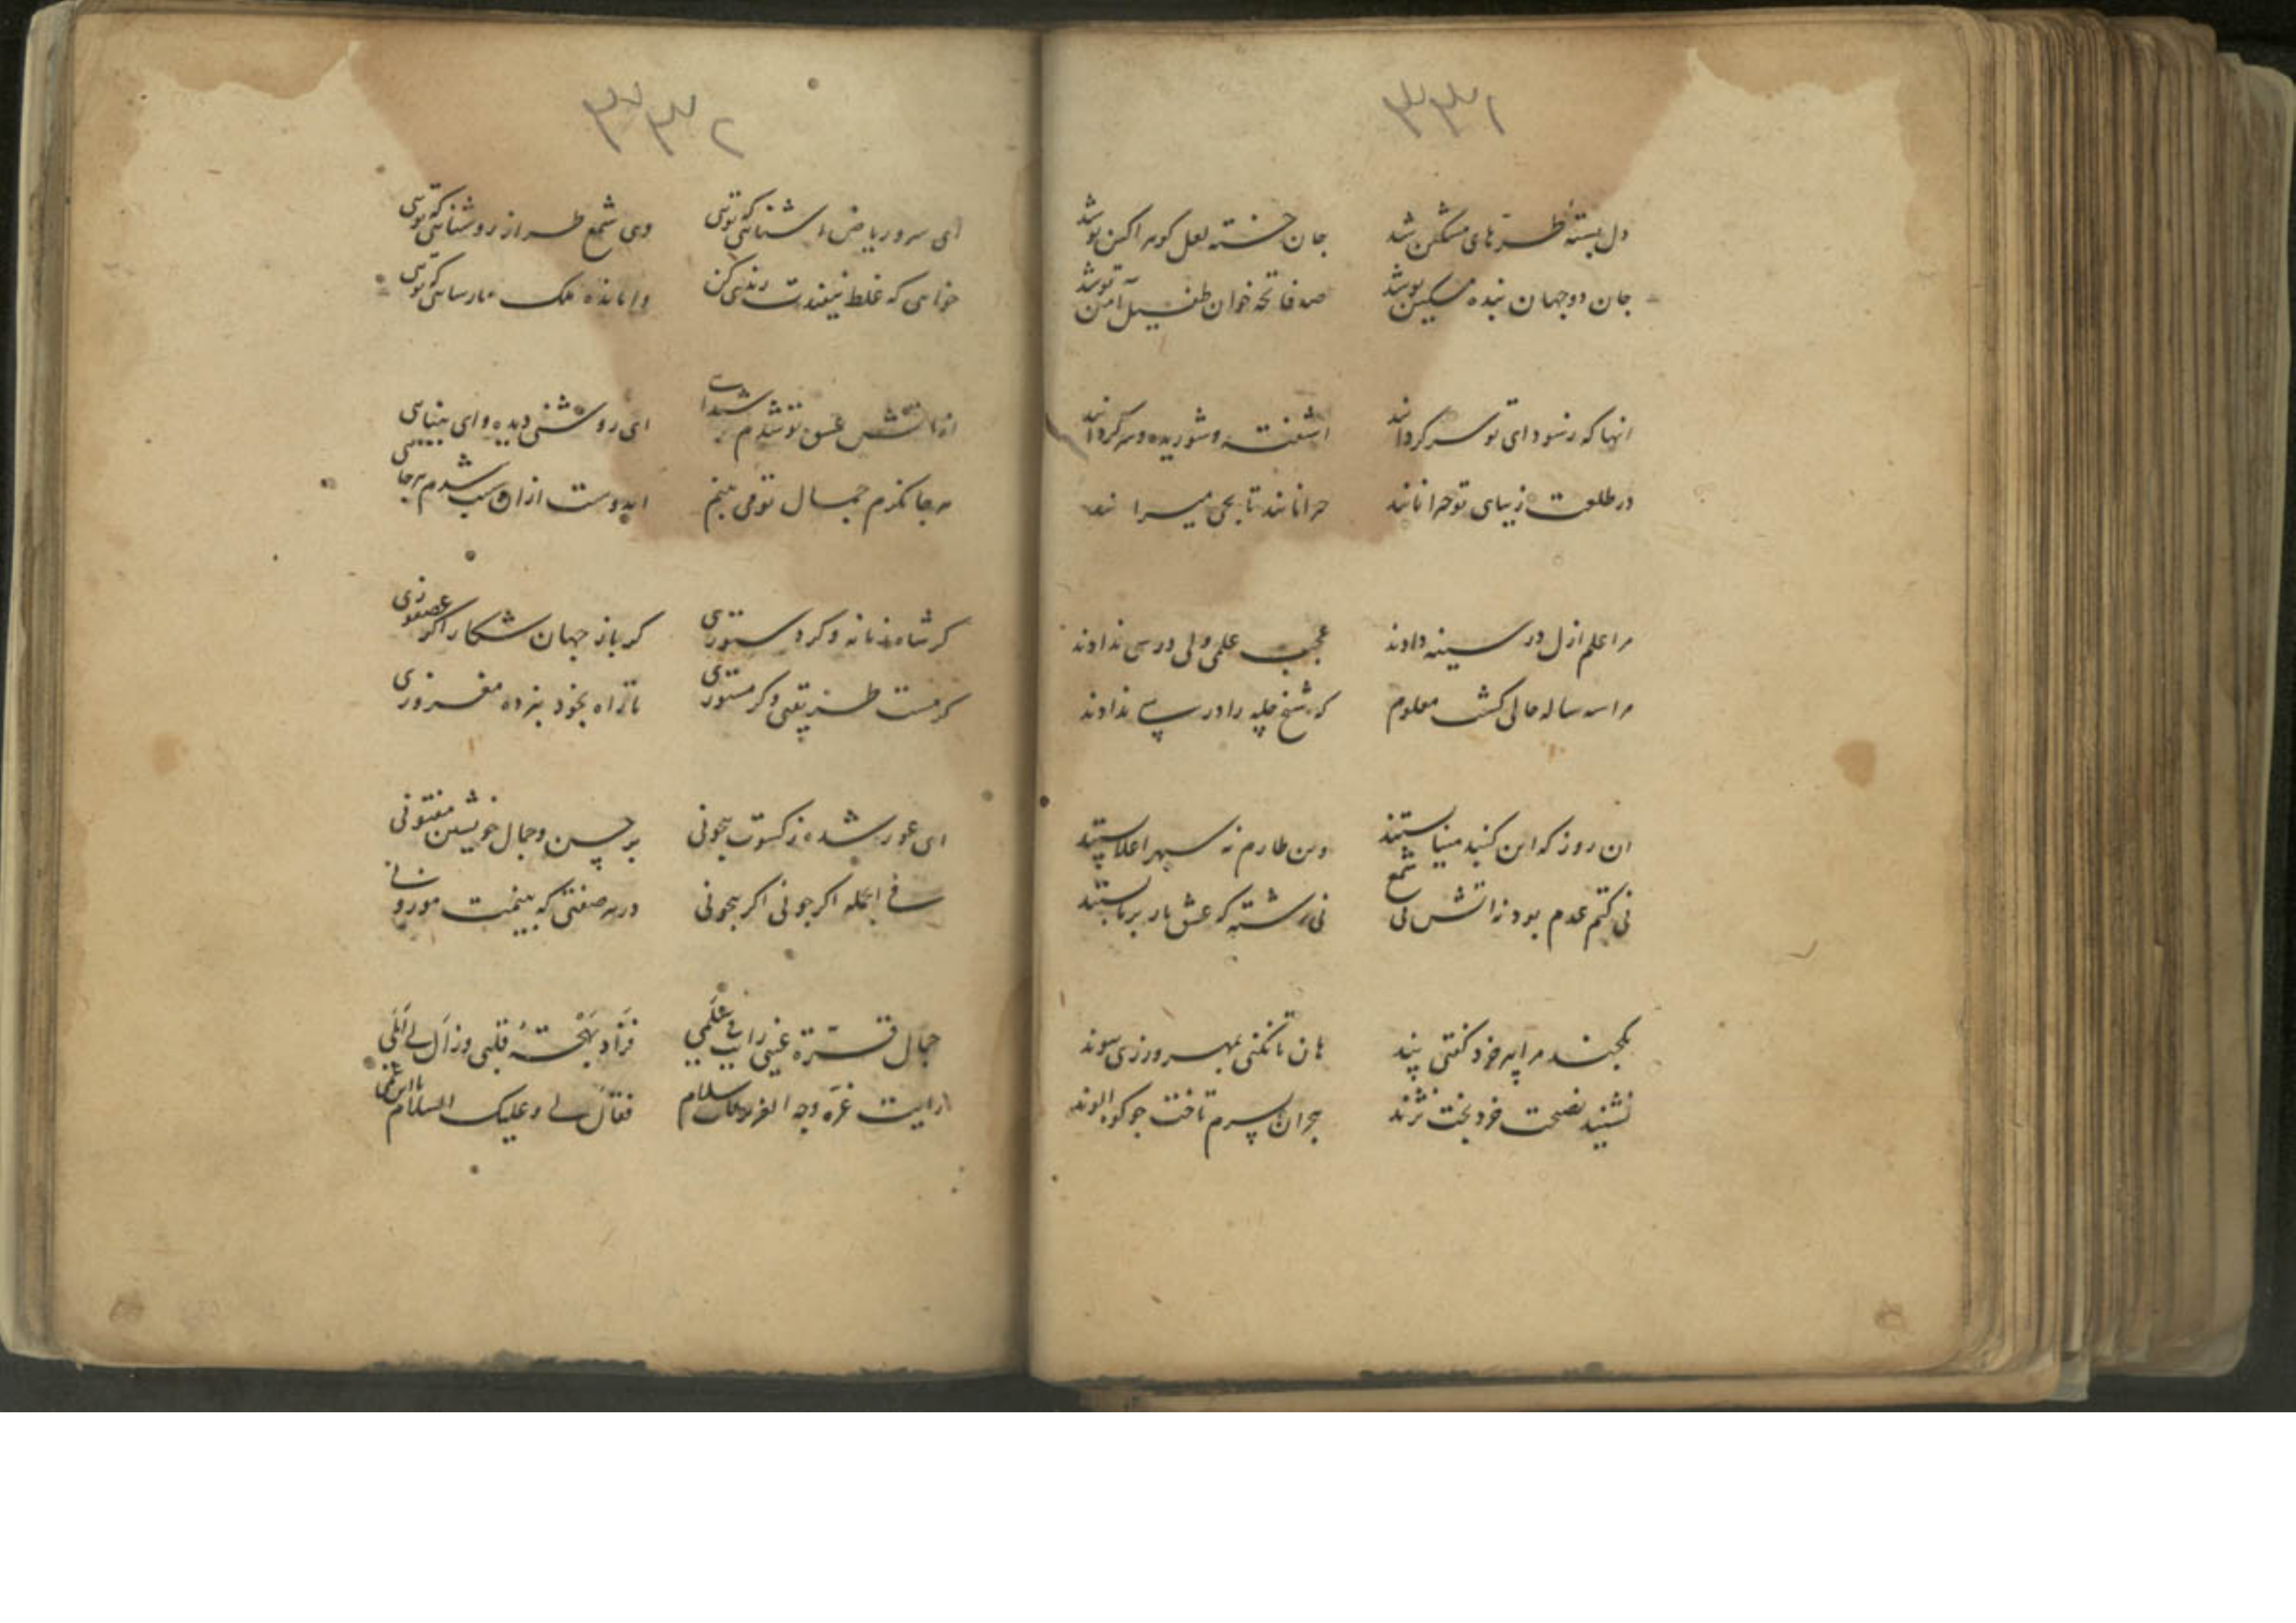 ۳۳۱
دل بسته طره‌های مشکین شد جان خسته لعل گوهر آکین تو شد
جان دو جهان بنده مسکین تو شد صد فاتحه خوان طفیل آمین تو شد
انها که ز سودای تو سرگردانند اشفته و شوریده و سرگردانند
در طلعت زیبای تو حیرانانند حیرانانند تا بحی
مرا علم ازل در سینه دادند عجب علمی ولی درسی ندادند
مرا سه ساله حالی گشت معلوم که شیخ چله را در سی ندادند
ان روز که این کنبد مینا بستند وین طارم نه سپهر اعلا بستند
نی کتم عدم بود نه اتش نی شمع نی رشته که عشق یار بر ما بستند
یکچند مرا پیر خرد گفتی پند هان تا نکنی بمهر ورزی پیوند
نشنید نصیحت خرد بخت نژند هجران بسرم تاخت چو کوه الوند
۳۳۲
ای سرو ریاض اشنائی که توئی وی شمع طراز روشنائی که توئی
خواهی که غلط نیفتدت رندی کن وامانده ملک پارسائی که توئی
از اتش عشق تو شدم شیدائی ای روشنی دیده و ای بینائی
هر جا نکرم جمال تو می بینم ایدوست ازان سبب شدم هرجائی
کر شاه زمانه و کر دستوری کر باز جهان شکار اکر عصفوری
کر مست طریقتی و کر مستوری تا راه بخود نبرده مغروری
ای عور شده ز کسوت بیچونی بر حسن و جمال خویشتن مفتونی
فی الجمله اکر چونی اکر بیچونی در هر صفتی که بینمت موزونی
جمال قرة عینی رایت فی علمی فزاد بهجته قلبی وزال لی المی
رایت غره وجه فقال لی و علیک السلام